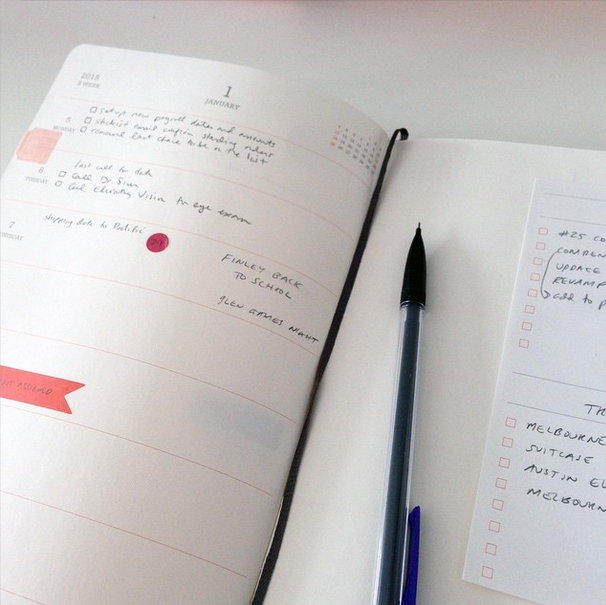 2015
2 WEEK
1
JANUARY
5
MONDAY
set up new payroll dates and accounts
stockist email confirm standing orders
renewal last chance to be on the list
6
TUESDAY
last call for dah
Call Dr. Simon
Call Elevating Vision for eye exam
7
shipping date to Pacific
FINLEY BACK
TO SCHOOL
GLEN GAMES NIGHT
#25 CO
UPDATE
REVAMP
add to p
MELBOURNE
SUITCASE
AUSTIN
MELBOURN